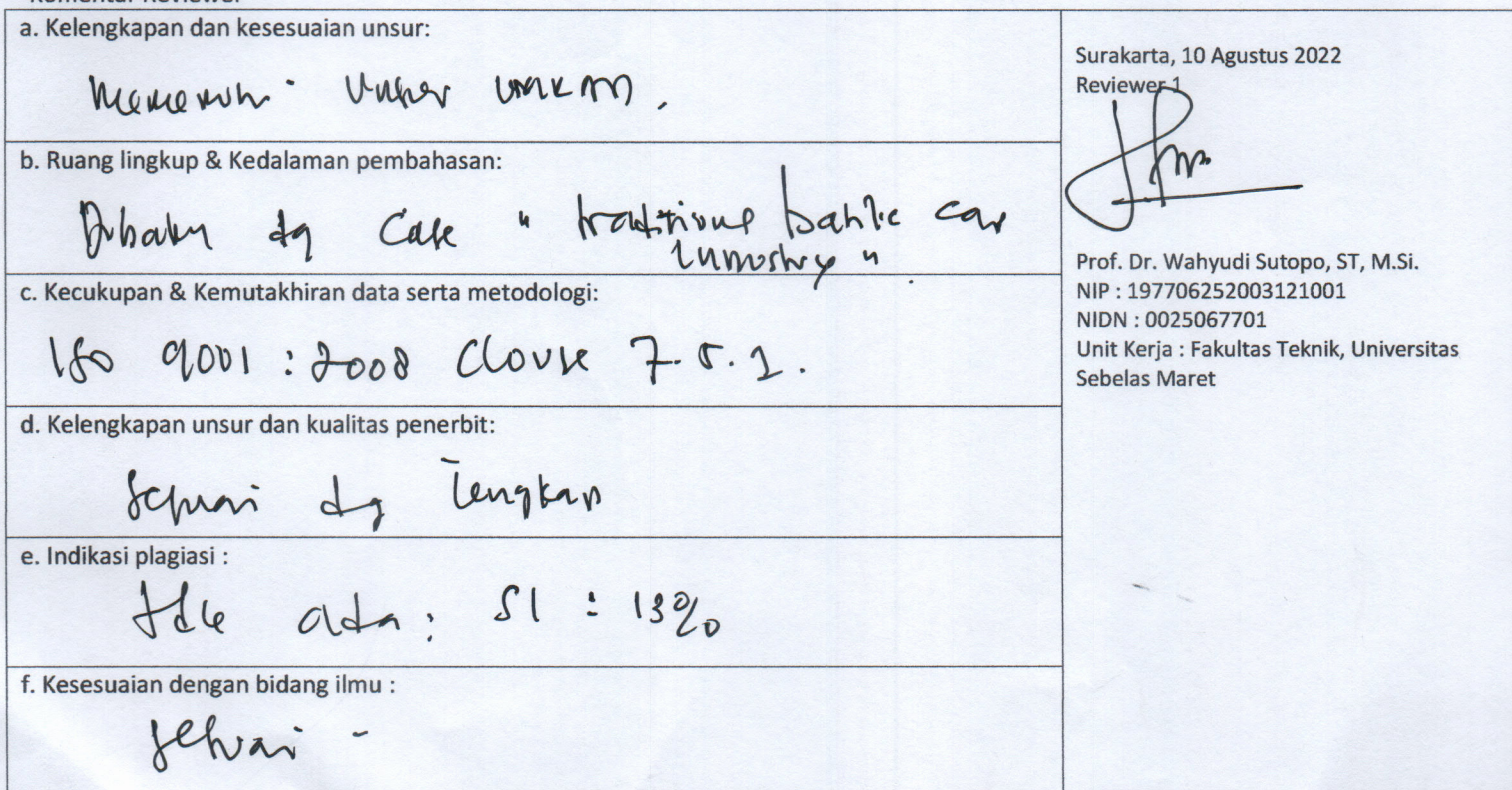 Komentar Reviewer
a. Kelengkapan dan kesesuaian unsur:
Memenuhi unsur
b. Ruang lingkup & Kedalaman pembahasan:
dg case " batik
industry ".
c. Kecukupan & Kemutakhiran data serta metodologi:
ISO 9001 : 2008 Clouse 7.5.1.
d. Kelengkapan unsur dan kualitas penerbit:
Sesuai dg lengkap
e. Indikasi plagiasi :
tdk ada; SI : 13%
f. Kesesuaian dengan bidang ilmu :
Sesuai -
Surakarta, 10 Agustus 2022
Reviewer 1
Prof. Dr. Wahyudi Sutopo, ST, M.Si.
NIP : 197706252003121001
NIDN : 0025067701
Unit Kerja : Fakultas Teknik, Universitas
Sebelas Maret